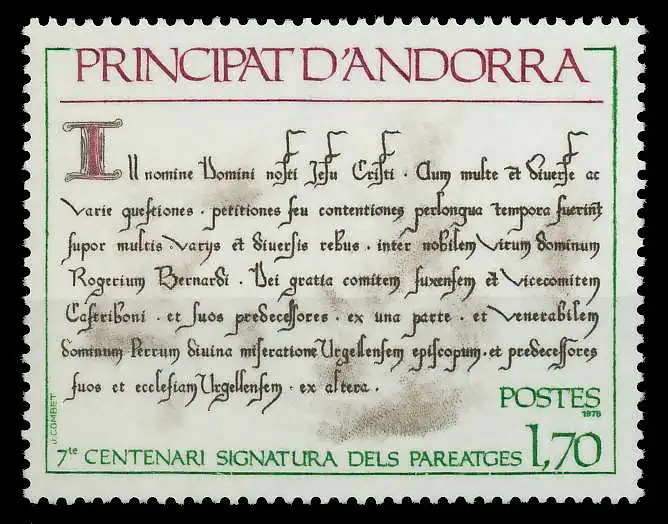 PRINCIPAT D'ANDORRA
In nomine Domini nostri Jesu Cristi · Cum multe et diverse ac
varie questiones · petitiones seu contentiones perlongua tempora fuerint
supor multis · varys et diuersis rebus · inter nobilem virum dominum
Rogerium Bernardi · Dei gratia comitem fuxensem et vicecomitem
Castriboni · et suos predecessores · ex una parte · et venerabilem
dominum Petrum diuina miseratione Urgellensem episcopum · et predecessores
suos et ecclesiam Urgellensem · ex altera ·
POSTES
1978
1,70
7te CENTENARI SIGNATURA DELS PAREATGES
J. COMBET